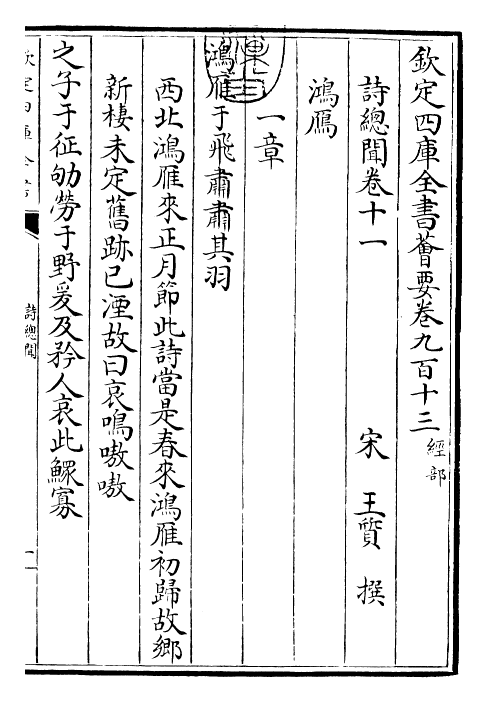 欽定四庫全書薈要卷九百十三 經部
詩總聞卷十一 宋 王質 撰
鴻鴈
一章
鴻雁于飛肅肅其羽
西北鴻雁來正月節此詩當是春來鴻雁初歸故鄉
新棲未定舊跡已湮故曰哀鳴嗷嗷
之子于征劬勞于野爰及矜人哀此鰥寡
詩總聞